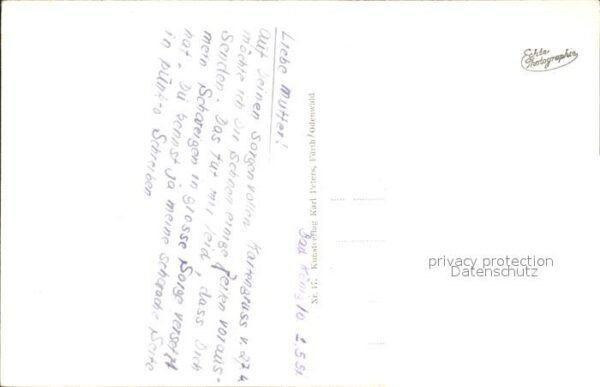 Echte
Photographie
Bad König/O 2.5.51
Liebe Mutter!
Auf deinen sorgenvollen Kartengruss v. 27.4
möchte ich dir schnell einige Zeilen voraus-
senden. Das tut mir leid, dass Dich
mein Schweigen in grosse Sorge versetzt
hat. Du kennst ja meine schwache Seite
in punkto Schreiben
Nr. 17. Kunstverlag Karl Peters, Fürth/Odenwald
privacy protection
Datenschutz